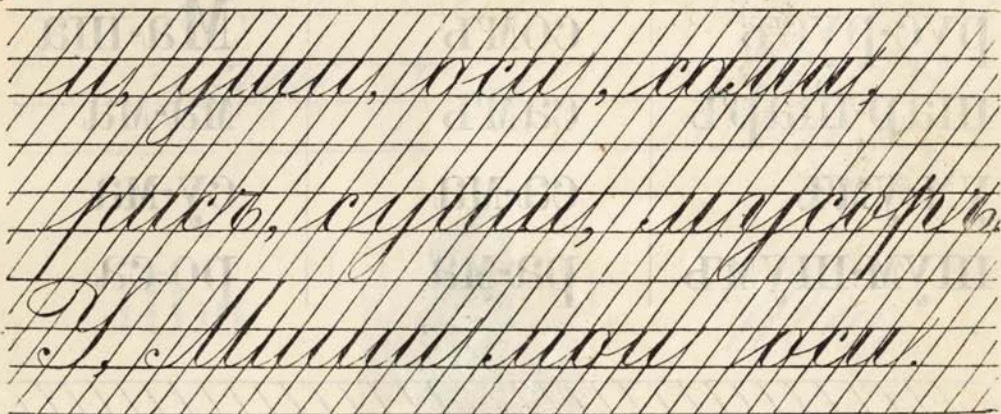 и, уши, оси, сами,
рисъ, суши, мусоръ.
У Миши мои оси.